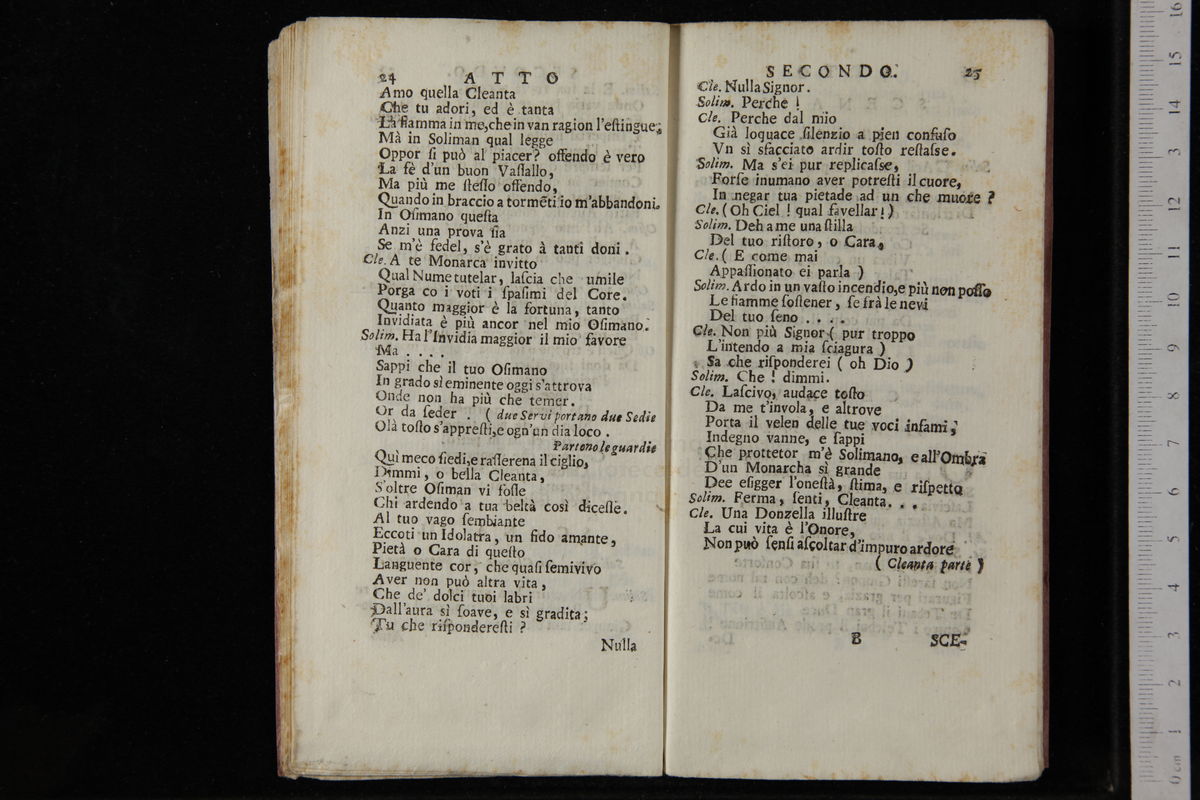 24 ATTO
Amo quella Cleanta
Che tu adori, ed è tanta
La fiamma in me, che in van ragion l'eſtingue;
Mà in Soliman qual legge
Oppor ſi può al piacer? offendo è vero
La fè d'un buon Vaſſallo,
Ma più me ſteſſo offendo,
Quando in braccio a tormẽti io m'abbandoni.
In Oſimano queſta
Anzi una prova ſia
Se m'è fedel, s'è grato à tanti doni.
Cle. A te Monarca invitto
Qual Nume tutelar, laſcia che umile
Porga co i voti i ſpaſimi del Core.
Quanto maggior è la fortuna, tanto
Invidiata è più ancor nel mio Oſimano.
Solim. Ha l'Invidia maggior il mio favore
Ma . . . .
Sappi che il tuo Oſimano
In grado sì eminente oggi s'attrova
Onde non ha più che temer.
Or da ſeder . ( due Servi portano due Sedie
Olà toſto s'appreſti, e ogn'un dia loco .
Partono le guardie
Quì meco ſiedi, e raſſerena il ciglio,
Dimmi, o bella Cleanta,
S'oltre Oſiman vi foſſe
Chi ardendo a tua beltà così diceſſe.
Al tuo vago ſembiante
Eccoti un Idolatra, un fido amante,
Pietà o Cara di queſto
Languente cor, che quaſi ſemivivo
Aver non può altra vita,
Che de' dolci tuoi labri
Dall'aura sì ſoave, e sì gradita;
Tu che riſpondereſti ?
Nulla
SECONDO. 25
Cle. Nulla Signor.
Solim. Perche !
Cle. Perche dal mio
Già loquace ſilenzio a pien confuſo
Vn sì sfacciato ardir toſto reſtaſse.
Solim. Ma s'ei pur replicaſse,
Forſe inumano aver potreſti il cuore,
In negar tua pietade ad un che muore ?
Cle. ( Oh Ciel ! qual favellar ! )
Solim. Deh a me una ſtilla
Del tuo riſtoro, o Cara.
Cle. ( E come mai
Appaſſionato ei parla )
Solim. Ardo in un vaſto incendio, e più non poſſo
Le fiamme ſoſtener, ſe frà le nevi
Del tuo ſeno . . . .
Cle. Non più Signor ( pur troppo
L'intendo a mia ſciagura )
Sa che riſponderei ( oh Dio )
Solim. Che ! dimmi.
Cle. Laſcivo, audace toſto
Da me t'invola, e altrove
Porta il velen delle tue voci infami;
Indegno vanne, e ſappi
Che prottetor m'è Solimano, e all'Ombra
D'un Monarcha sì grande
Dee eſigger l'oneſtà, ſtima, e riſpetto
Solim. Ferma, ſenti, Cleanta. . .
Cle. Una Donzella illuſtre
La cui vita è l'Onore,
Non può ſenſi aſcoltar d'impuro ardore
( Cleanta parte )
B SCE-